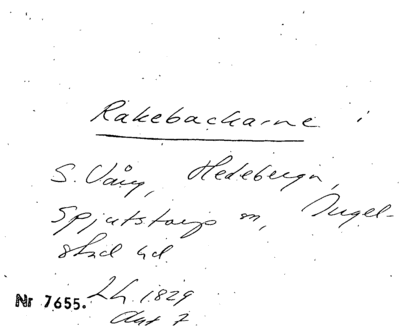 Rakebackarne
S. Vång, Hedebergn,
Spjutstorp sn, Ingel-
stad hd
Nr 7655. Lh. 1829
Akt 7